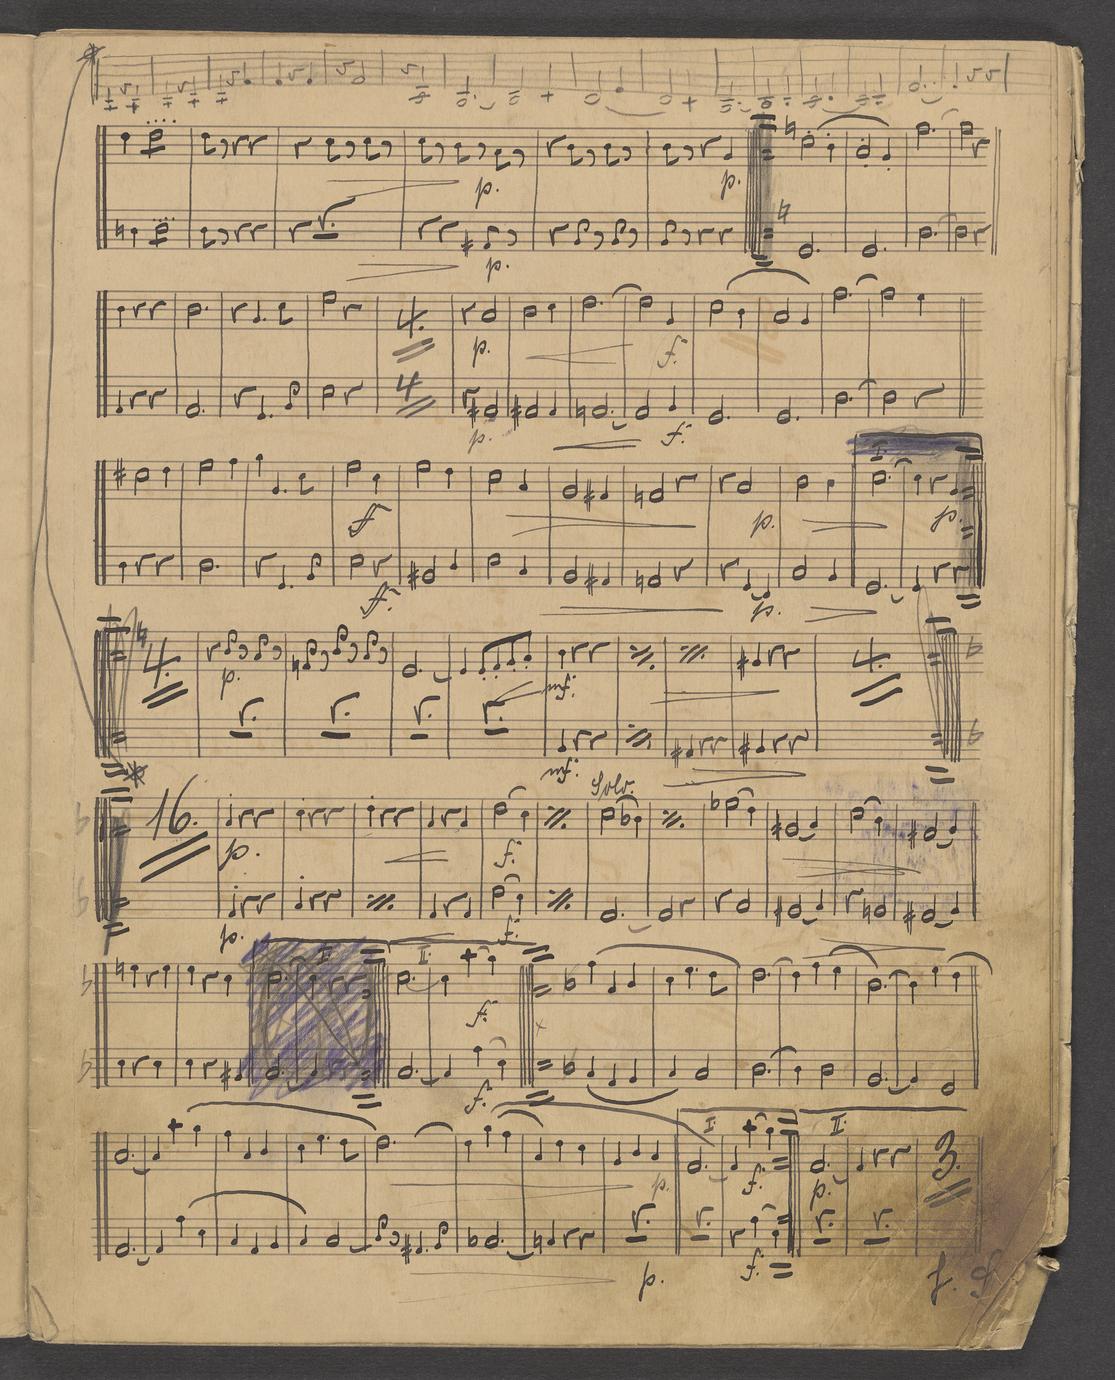 p. p.
p.
4. p. f.
4 p. f.
I.
f p. p.
f. p.
4. p. mf. 4.
mf.
Solo.
16. p. f.
p. f.
I. II.
f.
f.
I. II.
p. f. p. 3.
p. f. f.